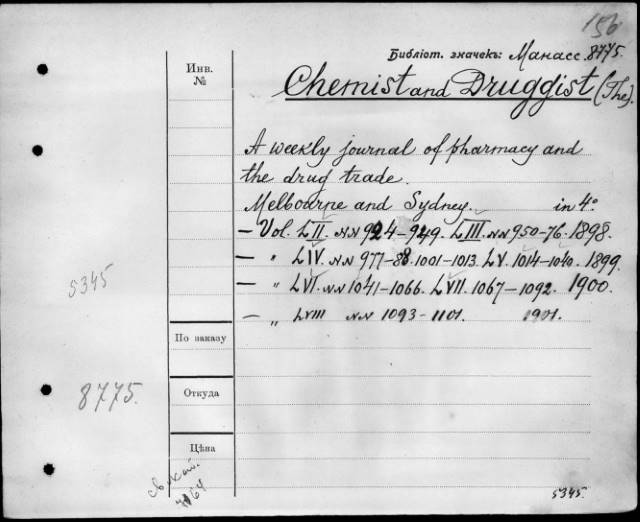 156
Библіот. значекъ: Манасс. 8775.
Инв. №
Chemist and Druggist (The).
A weekly journal of pharmacy and
the drug trade.
Melbourne and Sydney. in 4°
— Vol. LII. NN 924–949. LIII. NN 950–76. 1898.
— " LIV. NN 977–88. 1001–1013. LV. 1014–1040. 1899.
— " LVI. NN 1041–1066. LVII. 1067–1092. 1900.
— " LVIII NN 1093–1101. 1901.
5345
По заказу
Откуда
8775.
Цѣна
5345.